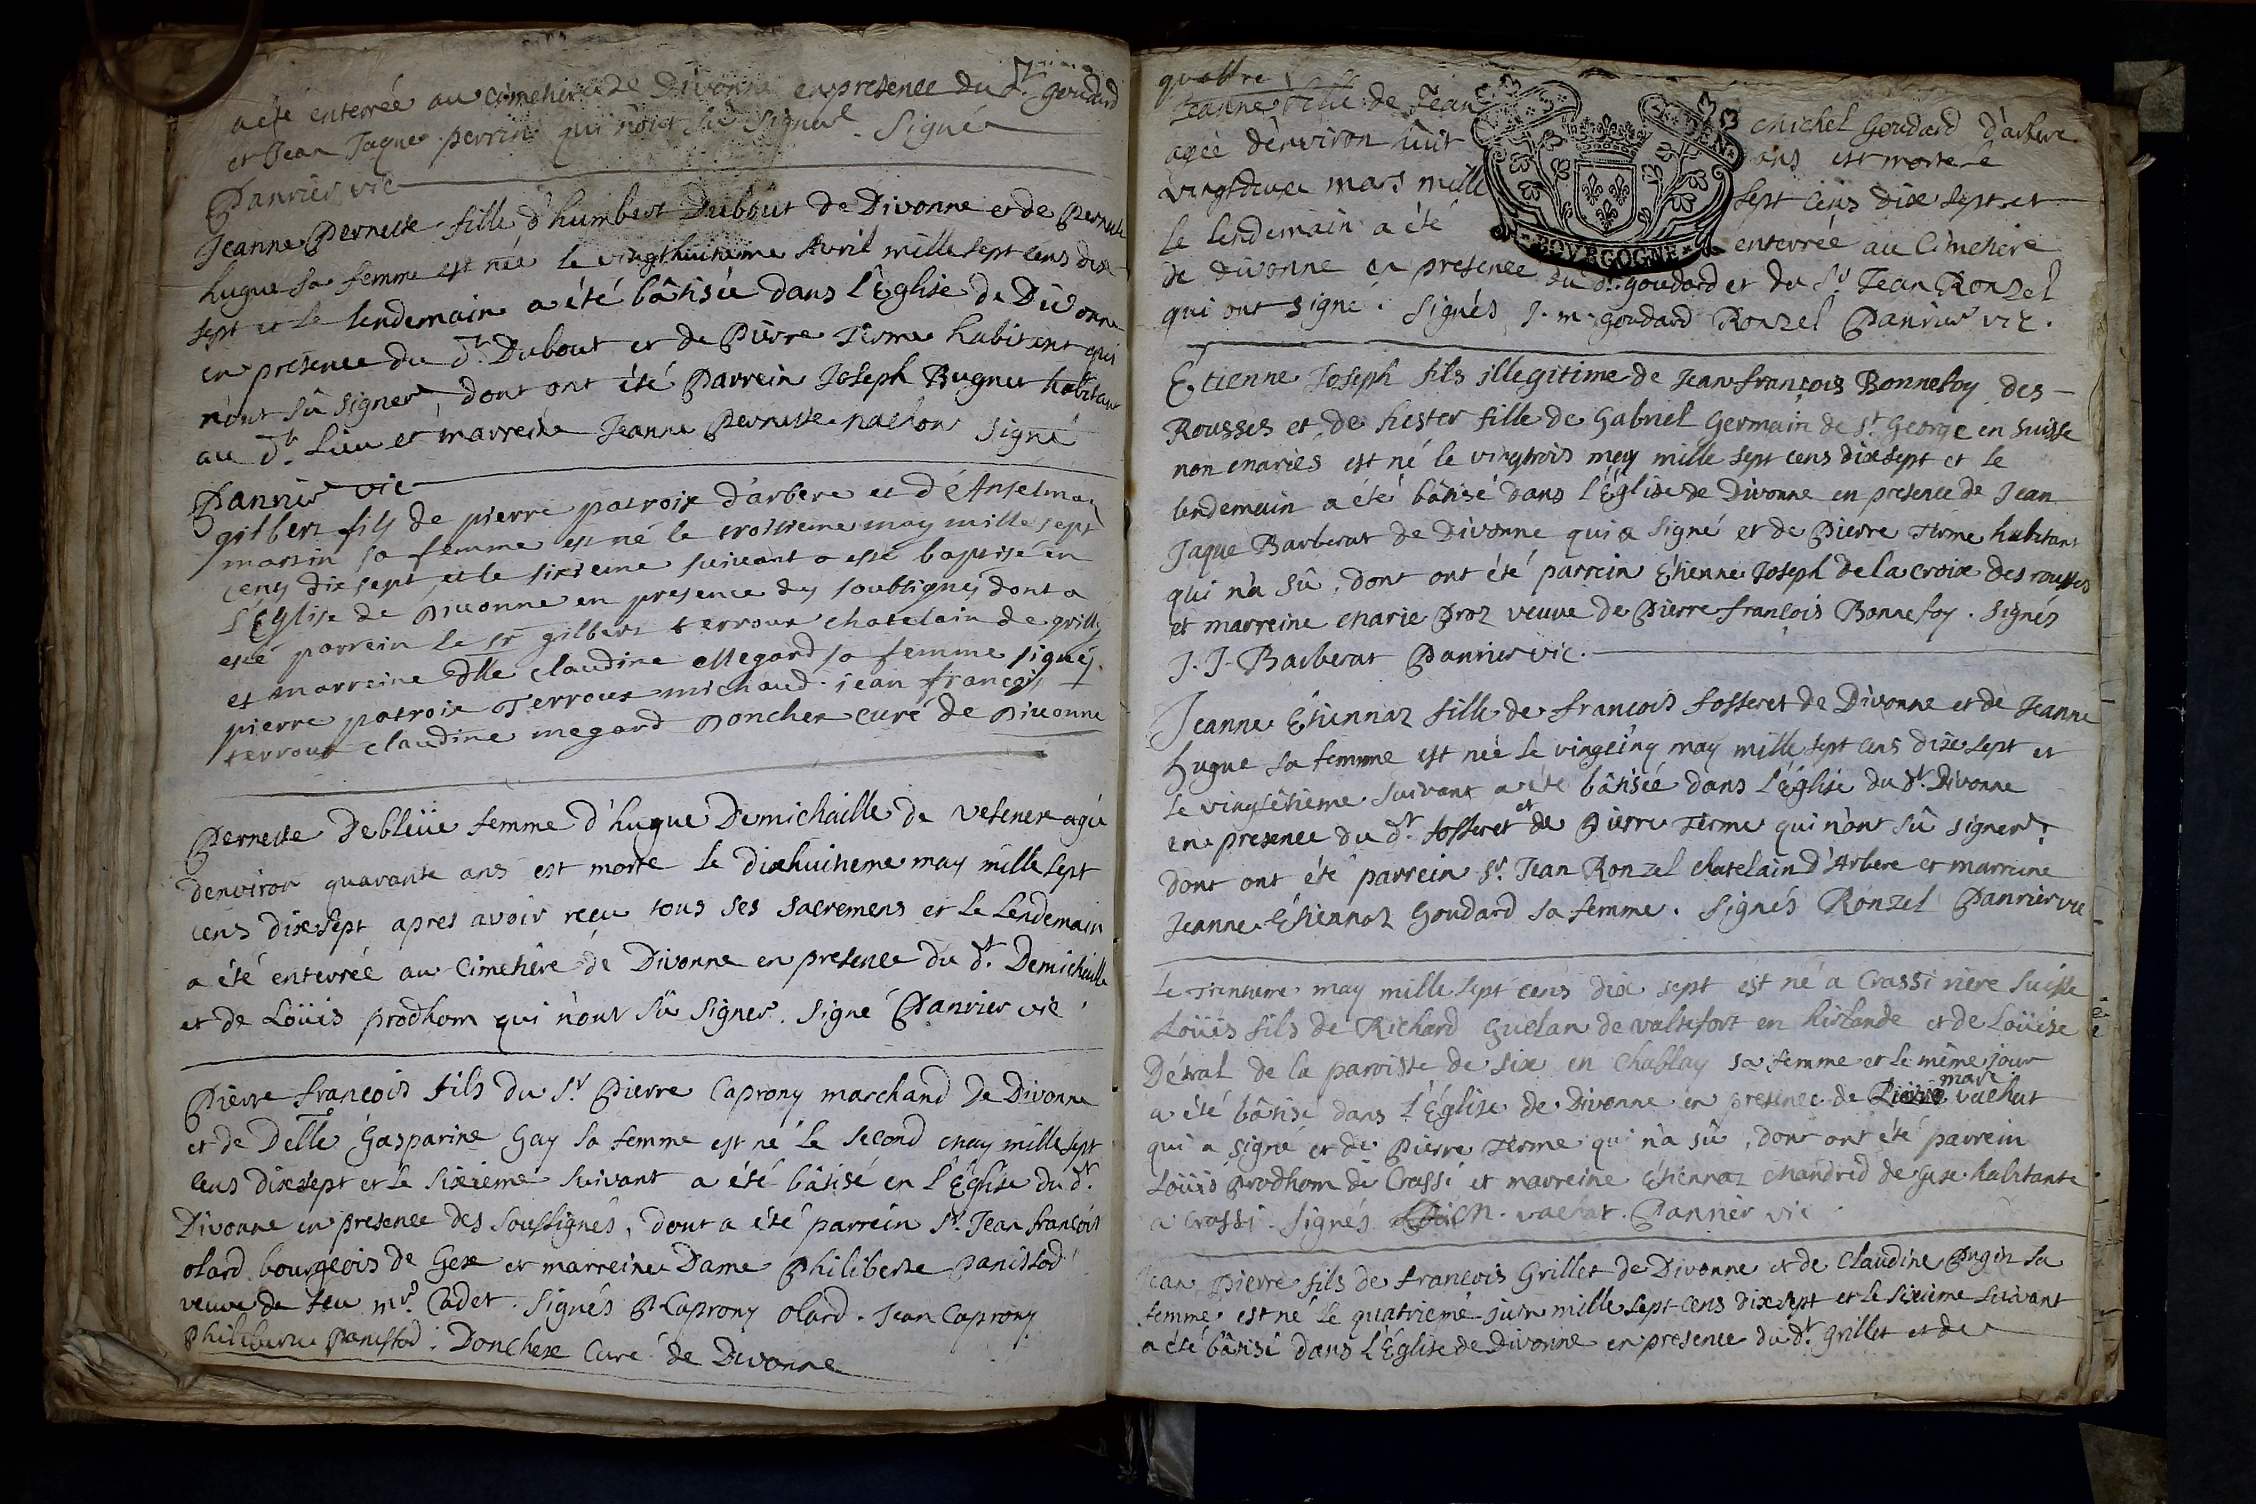 a été enterrée au cimetiere de Divonne en presence du dt. goudard
et Jean Jaque perrin qui n'ont sû signer. Signé
Panrier vic
Jeanne Pernette fille d'humbert Dubout de Divonne et de Pernette
hugue sa femme est née le vingthuitieme Avril mille sept cens dix
sept et le lendemain a été bâtisée dans l'Eglise de Divonne
en presence du dt. Dubout et de Pierre Terme habitant qui
n'ont sû signer, dont ont été Parrein Joseph Bugnet habitant
au dt. Lieu et marreine Jeanne Pernette nachon signé
Panrier vic
gilbert fils de pierre patroix d'arbere et d'Anselma
martin sa femme est né le troisieme may mille sept
cens dix sept et le sixieme suivant a esté baptisé en
l'Eglise de Divonne en presence des soubsignés dont a
esté parrein le sr gilbert terroux chatelain de grilly
et marreine dlle claudine Megard sa femme signés.
pierre patroix Terroux michaud. jean françois
terroux claudine megard Donchex curé de Divonne
Pernette Debleüe femme d'hugue Demichaille de Vesenex agée
denviron quarante ans est morte le dixhuitieme may mille sept
cens dixsept apres avoir reçu tous ses sacremens et le Lendemain
a été enterrée au Cimetiere de Divonne en presence du dt. Demichaille
et de Loüis prodhom qui n'ont sû signer. Signé Panrier vic
Pierre françois fils du Sr. Pierre Caprony marchand de Divonne
et de Delle Gasparine Gay sa femme est né le second may mille sept
cens dixsept et le sixieme suivant a été bâtisé en l'Eglise du dt.
Divonne en presence des soussignés, dont a été parrein Sr. Jean françois
olard bourgeois de Gex et marreine Dame Philiberte Panissod
veuve de feu mr. Cadet. Signés P. Caprony olard. Jean Caprony
Philiberte Panissod. Donchex Curé de Divonne
quattre
Jeanne fille de Jean Michel Goudard d'arbere
agée d'environ huit ans est morte le
vingtdeux mars mille sept cens dix sept et
le lendemain a été enterrée au Cimetiere
de Divonne en presence du dt. goudard et du Sr Jean Ronzel
qui ont signé. Signés J. m. goudard Ronzel Panrier vic.
BOVRGOGNE
Étienne Joseph fils illegitime de Jean françois Bonnefoy des
Rousses et de hester fille de Gabriel Germain de St. George en Suisse
non mariés est né le vingtrois may mille sept cens dixsept et le
lendemain a été bâtisé dans l'Église de Divonne en presence de Jean
Jaque Barberat de Divonne qui a signé et de Pierre Terme habitant
qui n'a sû, dont ont été parrein Étienne Joseph de la croix des rousses
et marreine Marie Proz veuve de Pierre françois Bonnefoy. Signés
J. J. Barberat Panrier vic.
Jeanne Étiennaz fille de françois fosseret de Divonne et de Jeanne
hugue sa femme est née le vingcinq may mille sept cens dix sept et
le vingsetieme suivant a été bâtisée dans l'Église du dt. Divonne
en presence du dt. fosseret et de Pierre Terme qui n'ont sû signer,
dont ont été parrein Sr. Jean Ronzel chatelain d'Arbere et marreine
Jeanne Étiennaz Goudard sa femme. Signés Ronzel Panrier vic
Le Trentieme may mille sept cens dix sept est né a Crassi riere Suisse
Loüis fils de Richard Guelan de valtefort en hirlande et de Loüise
Détral de la paroisse de six en Chablay sa femme et le même jour
a été bâtisé dans l'Église de Divonne en presence de marc vachat
qui a signé et de Pierre Terme qui n'a sû, dont ont été parrein
Loüis Prodhom de Crassi et marreine Étiennaz Mandrid de Gex habitante
a Crassi. Signés M. vachat. Panrier vic
Jean Pierre fils de françois Grillet de Divonne et de Claudine Pugin sa
femme est né le quatrieme juin mille sept cens dixsept et le sixieme suivant
a été bâtisé dans l'Église de Divonne en presence du dt. grillet et de